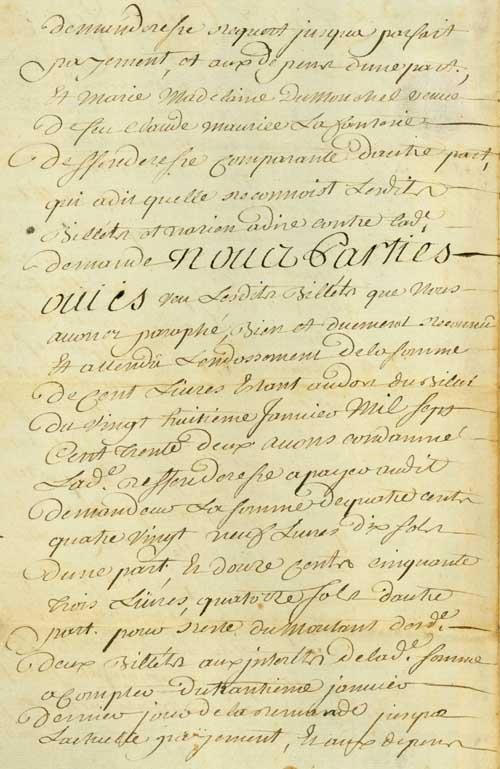 demanderesse requert jusqua parfait
payement, et aux depens dune part,
Et Marie Madelaine Dumouchel veuve
de feu Claude Maurice Lafantaisie
deffenderesse comparante dautre part,
qui adit quelle reconnoist Lesdits
Billéts et na rien adire contre lad.e
demande Nous Parties
ouies veu Lesdits Billéts que Nous
avons paraphé, Bien et duement reconnû
Et attendû Lendossement de la somme
de Cent Livres Estant audos du Billet
du Vingt huitieme Janvier Mil Sept
Cent trente deux avons condamné
Lad.e deffenderesse apayer audit
demandeur La somme dequatre cents
quatre Vingt neuf Livres dix sols
dune part, Et douze Cents cinquante
trois Livres, quatorze sols dautre
part. pour reste du Montant desd.
deux Billéts aux interêts de lad.e somme
a Compter du trantieme janvier
dernier jour de la demande jusqua
Lactuelle payement, Et aux depens